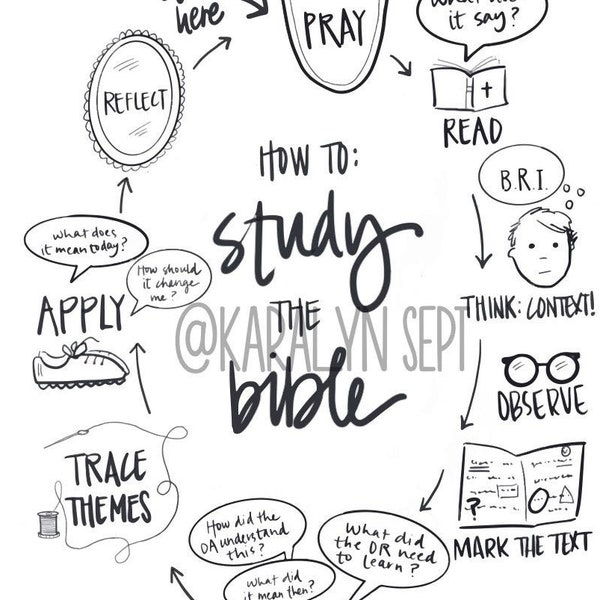 here
PRAY
it say?
READ
B.R.I.
THINK: CONTEXT!
OBSERVE
?
MARK THE TEXT
What did
the OR need
to learn?
How did the
OA understand
this?
What did
it mean then?
TRACE
THEMES
What does
it mean today?
How should
it change
me?
APPLY
REFLECT
HOW TO:
study
THE
bible
@KARALYN SEPT